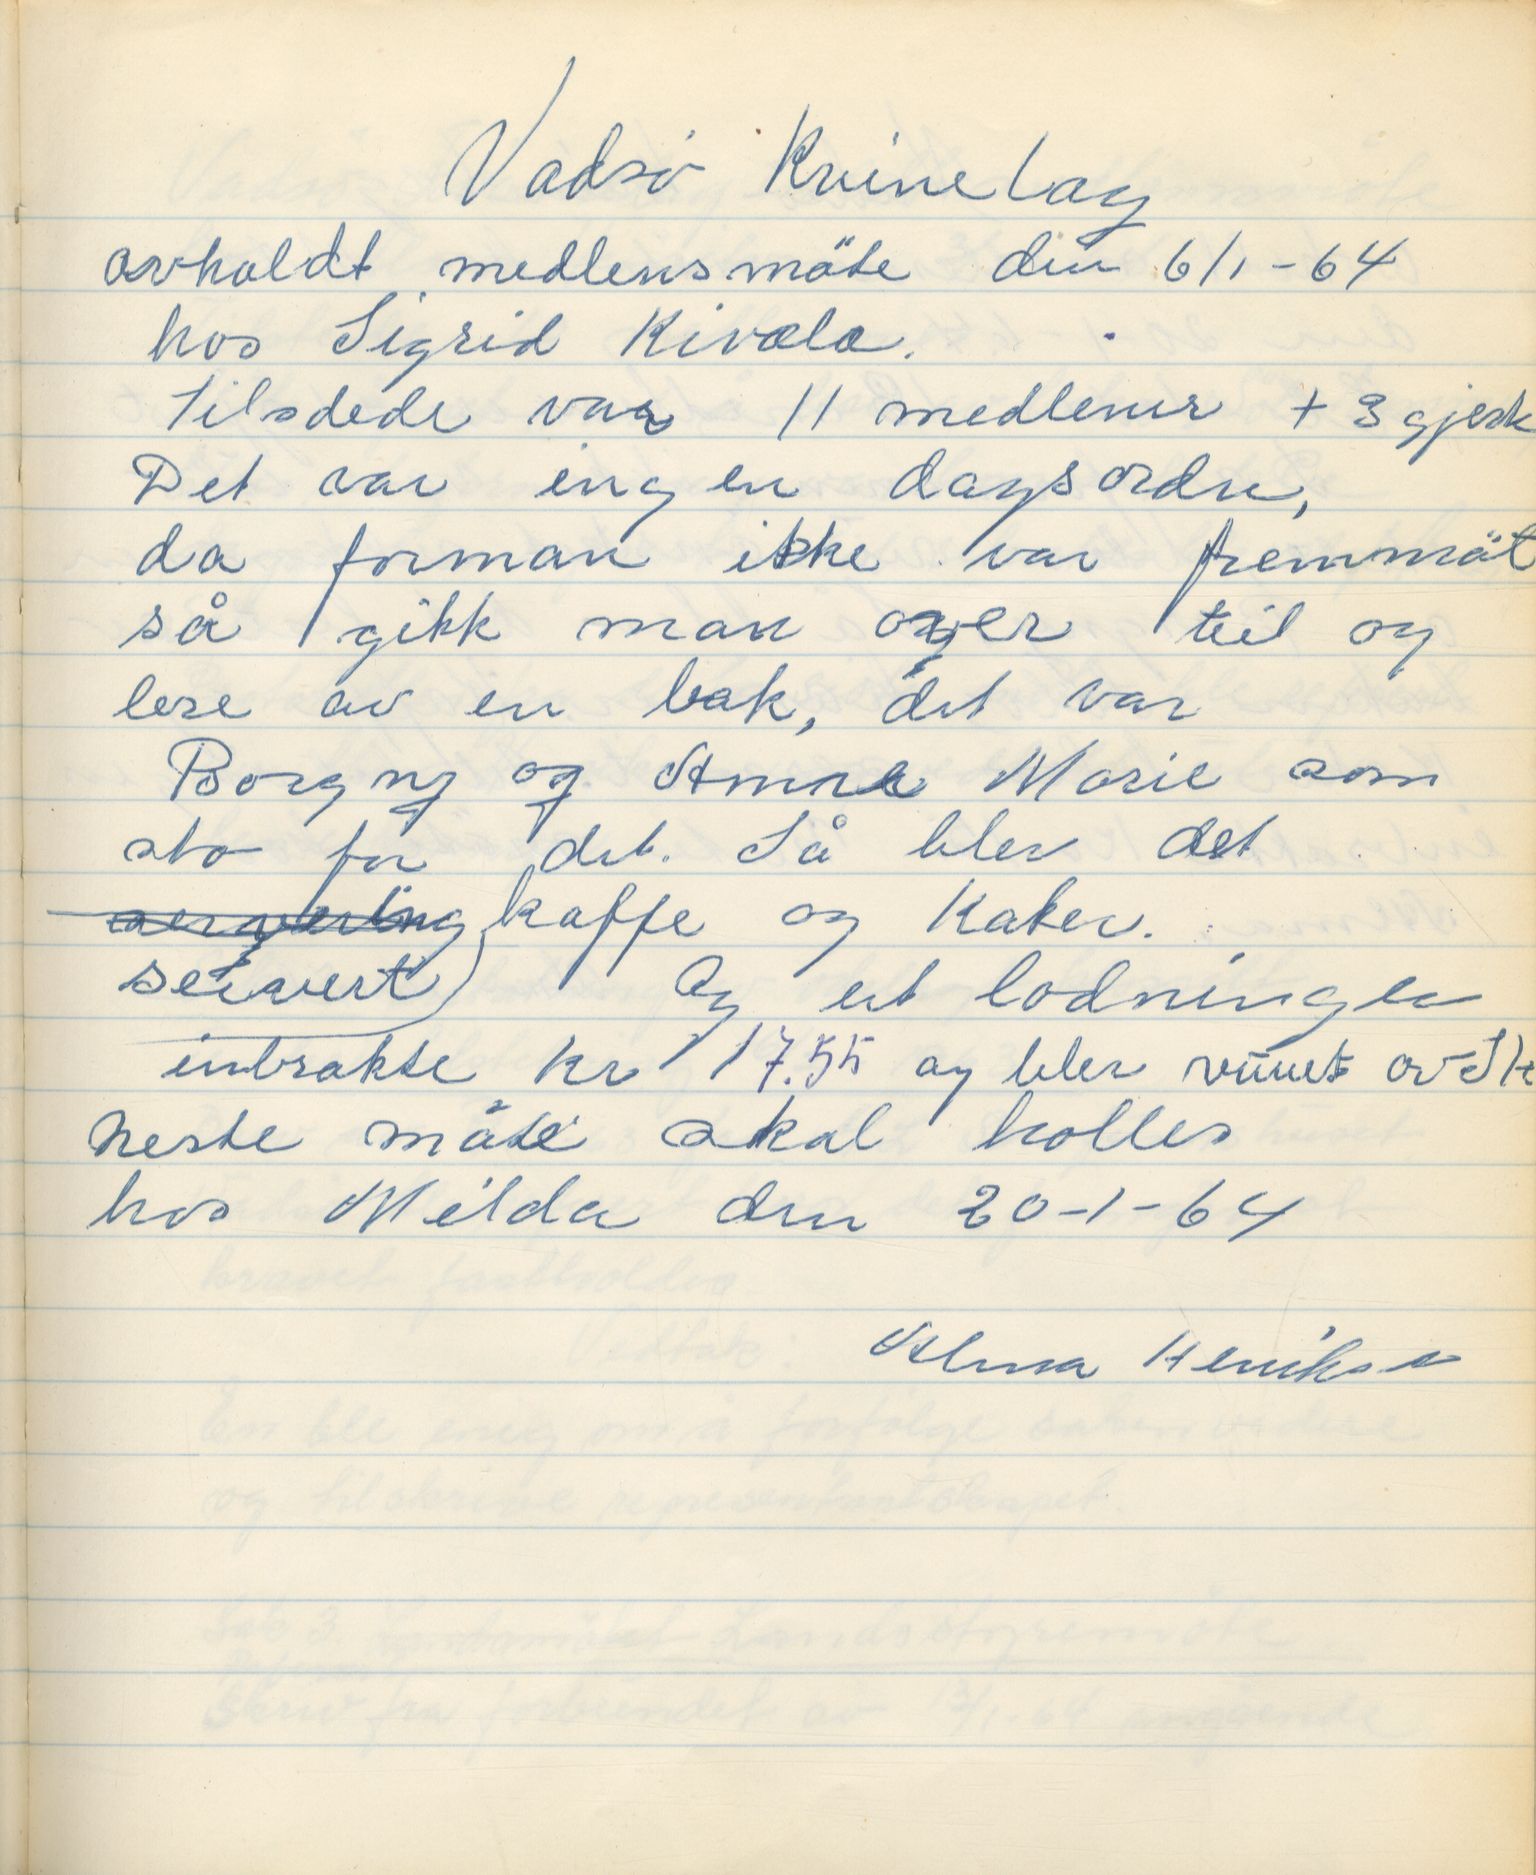 Vadsø Kvinelag
avholdt medlensmöte den 6/1-64
hos Sigrid Kivæla.
Tilsdede var 11 medlener + 3 gjest
Det var ingen dagsorden,
da forman ikke var fremmöt
så gikk man over til og
lese av en bok, det var
Borgny og Anna Marie som
sto for det. Så blev det
servering kaffe og Kaker.
servert Og ut lodningen
inbrakte kr 17.55 og blev vunet av
neste möte skal holles
hos Milda den 20-1-64
Alma Henriksen